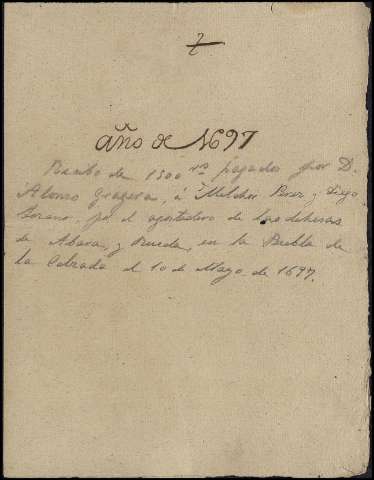 año de 1697
Recibo de 1500 rs pagados por D.
Alonso Grageras, á Melchor Perez y Diego
por el agostadero de las dehesas
de y Rueda, en la Puebla de
la Calzada el 10 de Mayo de 1697.